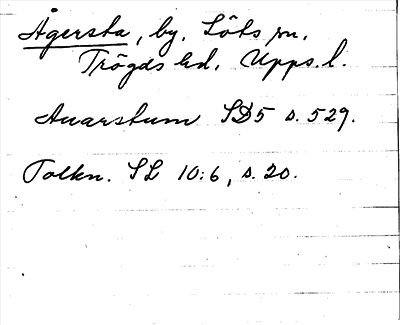 Ågersta, by. Löts sn.
Trögds hd. Upps. l.
Auarstum SD5 s. 529.
Tolkn. SL 10:6, s. 20.